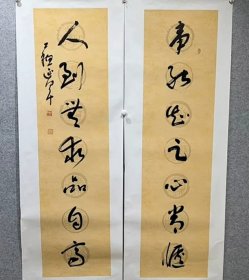 事能知足心常愜
人到無求品自高